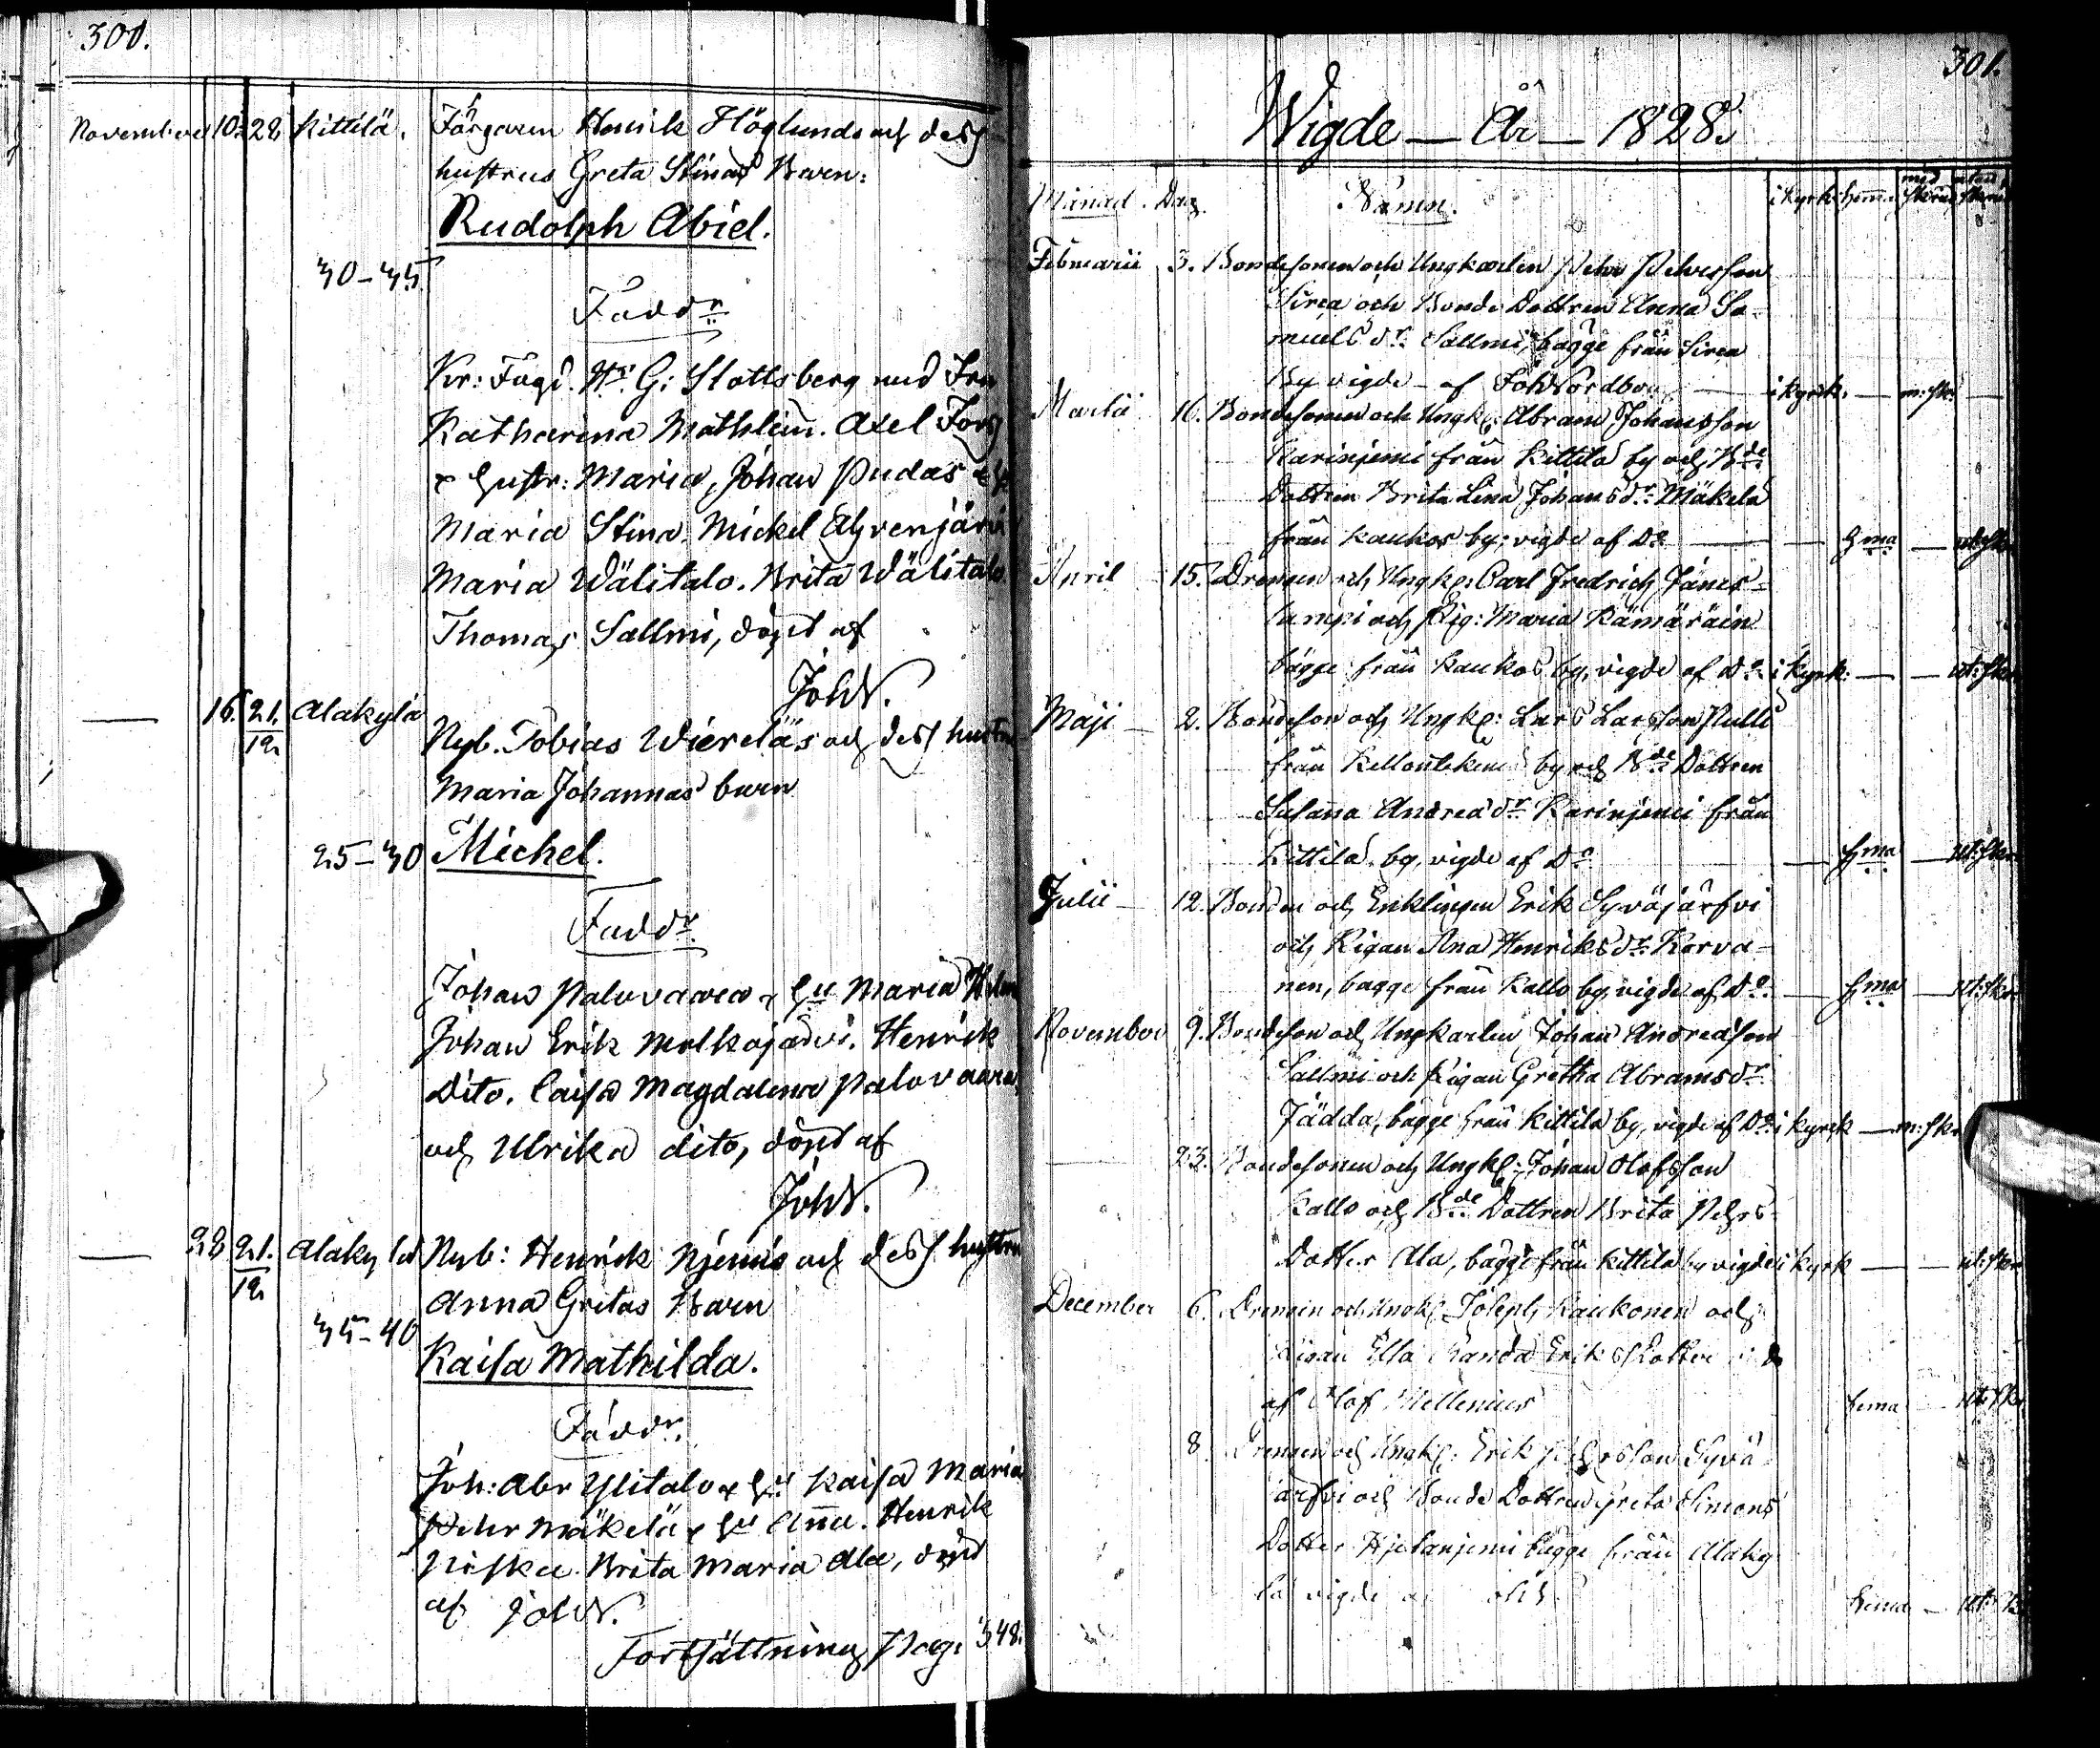 300.
November 10. 28 Kittilä. Färgaren Henrik Höglunds och dess
hustrus Greta Stinas Barn:
Rudolph Abiel.
30-35.
Faddr
Kr: Fogd. Hr G: Slottsberg med Fru
Katharina Mathlein. Axel Fors
& hustr: Maria, Johan Pudas &
Maria Stina. Mickel Ahvenjärvi
Maria Wälitalo. Brita Wälitalo
Thomas Sallmi, döpt af
JohN.
— 16. 21./12. Alakylä
Nyb. Tobias Wierelä's och dess hustru
Maria Johannas barn
25-30 Michel.
Faddr
Johan Palovaara & hu Maria Hel
Johan Erik Molkojärvi. Henrik
Dito. Caisa Magdalena Palovaara
och Ulrika dito, döpt af
JohN.
— 28 21./12. Alakylä Nyb: Henrik Njemis och dess hustru
Anna Gretas Barn
35-40
Kaisa Mathilda.
Faddr.
Joh: Abr Ylitalo & hu Kaisa Maria
Pehr Mäkelä & hu Anna. Henrik
Niska. Brita Maria Ala, döpt
af JohN.
Fortsättning Pag: 348.
301.
Wigde — År — 1828.
Månad. Dag. Namn. i kyrk: hema med skrud utan skrud
Februarii 3. Bondesonen och Ungkarlen Pehr Pehrsson
Sirca och Bonde Dottren Anna Sa-
muels dr. Sallmi, bägge från Sirca
By vigde af Joh Nordberg — i kyrk. — m: skr. —
Martii 16. Bondesonen och Ungk: Abram Johansson
Karinjemi från Kittilä by och Bde
Dottren Brita Lena Johans dr. Mäkelä
från Kaukos by; vigde af Do — hma — ut: skr
April 15. Drengen och Ungk: Carl Fredrich Jänes-
lampi och Pig: Maria Kämäräin
bägge från Kaukos by, vigde af Do i kyrk: — ut: skr
Maji — 2. Bondeson och Ungk: Lars Larsson Nulli
från Kellontekemä by och Bde Dottren
Susanna Andreæ dr Karinjemi från
Kittilä by, vigde af Do — hma — ut: skr
Julii — 12. Bonden och Enklingen Erik Syväjärfvi
och Pigan Ana Henriks dr. Korva-
nen, bägge från Kallo by, vigde af Do. — hma — ut: skr
November 9. Bondeson och Ungkarlen Johan Andreæson
Sallmi och Pigan Gretha Abrams dr.
Jädda, bägge från Kittilä by, vigde af Do. i kyrk — m: skr
— 23. Bondesonen och Ungk: Johan Olofsson
Kallo och Bde Dottren Brita Pehrs
Dotter Ala, bägge från Kittilä by vigde i kyrk — ut: skr
December 6. Drengen och Ungk Joseph Kaukonen och
Pigan Ella Eriks Dotter
af Olof Mellenius hema — ut: skr
8. Drengen och Ungk: Erik Pehrsson Syvä
järfvi och Bonde Dottren Greta Simons
Dotter Hjetanjemi bägge från Alaky
lä vigde hema — ut: